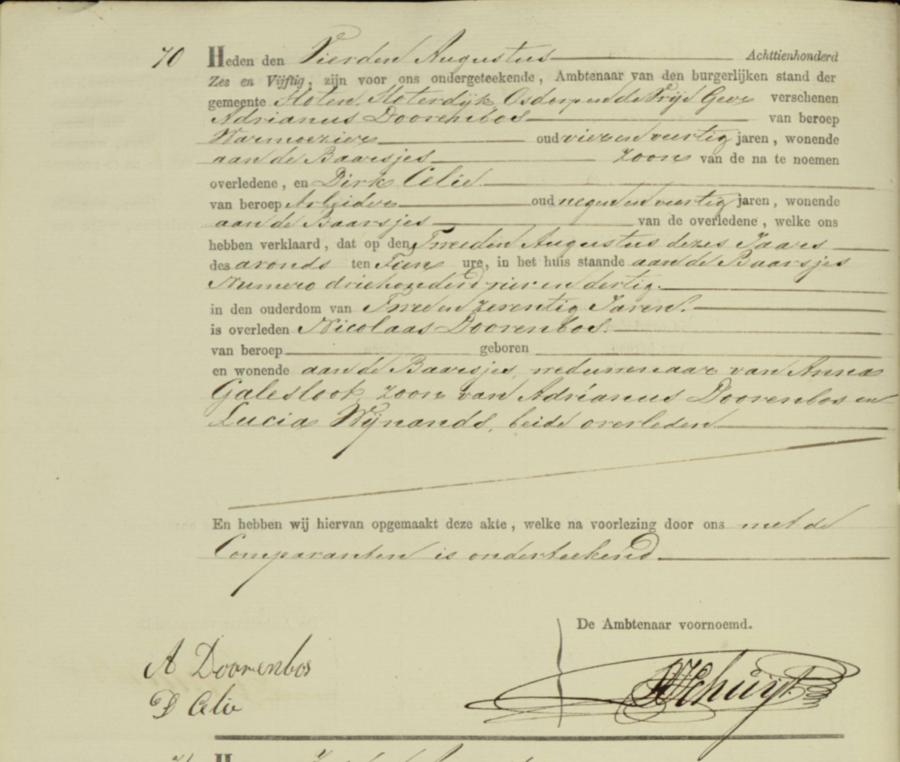 70 Heden den Vierden Augustus Achttienhonderd
Zes en Vijftig, zijn voor ons ondergeteekende, Ambtenaar van den burgerlijken stand der
gemeente Sloten Sloterdijk Osdorp en de Vrije Geer verschenen
Adrianus Doorenbos van beroep
Warmoezier oud vier en veertig jaren, wonende
aan de Baarsjes Zoon van de na te noemen
overledene, en Dirk Celie
van beroep Arbeider oud negen en veertig jaren, wonende
aan de Baarsjes van de overledene, welke ons
hebben verklaard, dat op den Tweeden Augustus dezes Jaars
des avonds ten Tien ure, in het huis staande aan de Baarsjes
Numero driehonderd vier en dertig.
in den ouderdom van Twee en zeventig Jaren.
is overleden Nicolaas Doorenbos.
van beroep geboren
en wonende aan de Baarsjes, weduwenaar van Anna
Galesloot, zoon van Adrianus Doorenbos en
Lucia Wijnands, beide overleden
En hebben wij hiervan opgemaakt deze akte, welke na voorlezing door ons met de
Comparanten is onderteekend
De Ambtenaar voornoemd.
A Doorenbos
D Celie
Schuijt